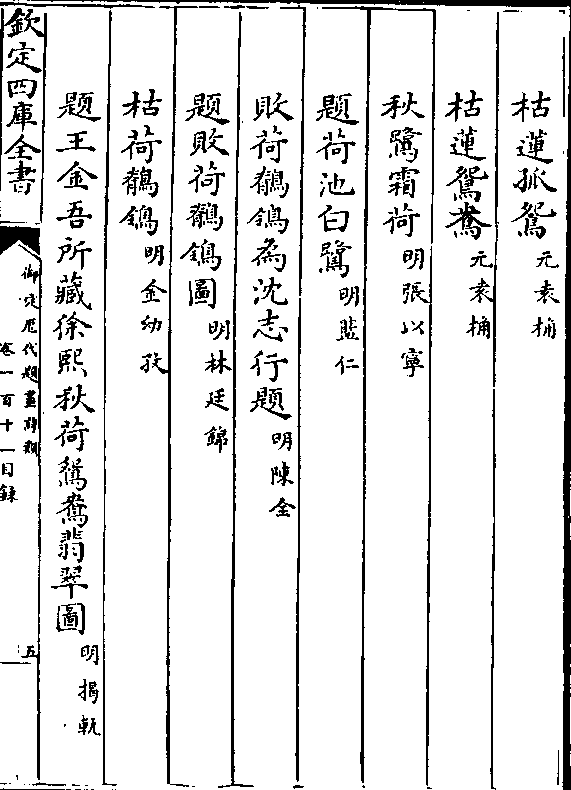 枯蓮孤鴛元袁桷
枯蓮鴛鴦元袁桷
秋鷺霜荷明張以寧
題荷池白鷺明藍仁
敗荷鶺鴒為沈志行題明陳全
題敗荷鶺鴒圖明林廷錦
枯荷鶺鴒明金幼孜
題王金吾所藏徐熙秋荷鴛鴦翡翠圖明揭軌
欽定四庫全書
御定歷代題畫詩類
卷一百十一目錄
五